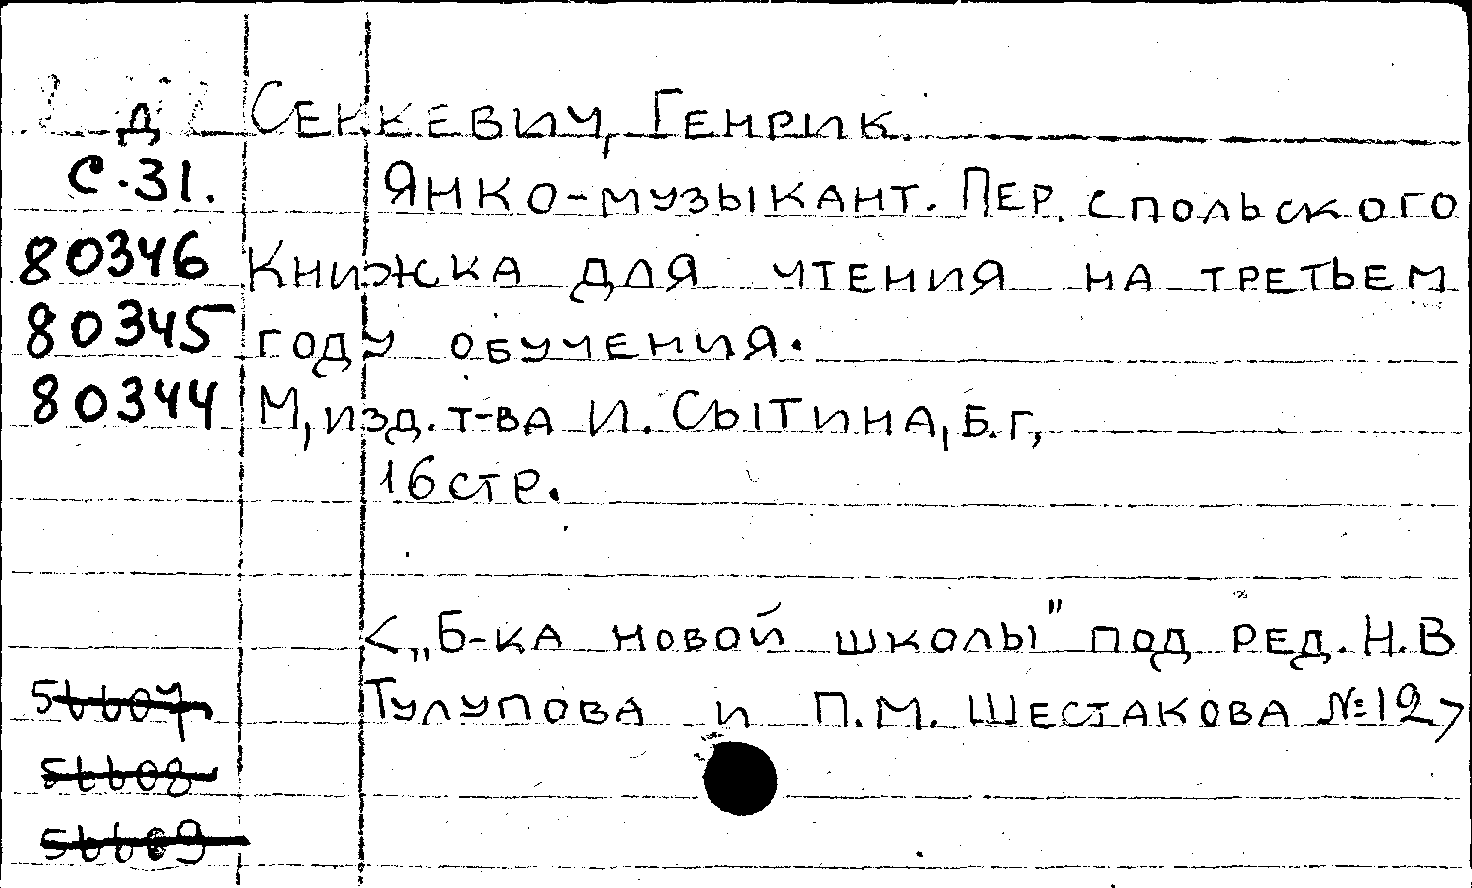 Д Сенкевич, Генрик.
С.31. Янко-музыкант. Пер. с польского
80346 Книжка для чтения на третьем
80345 году обучения.
80344 М, изд. т-ва И. Сытина, Б.г,
16 стр.
<„Б-ка новой школы" под ред. Н.В
56607 Тулупова и П.М. Шестакова №12>
56608
56609